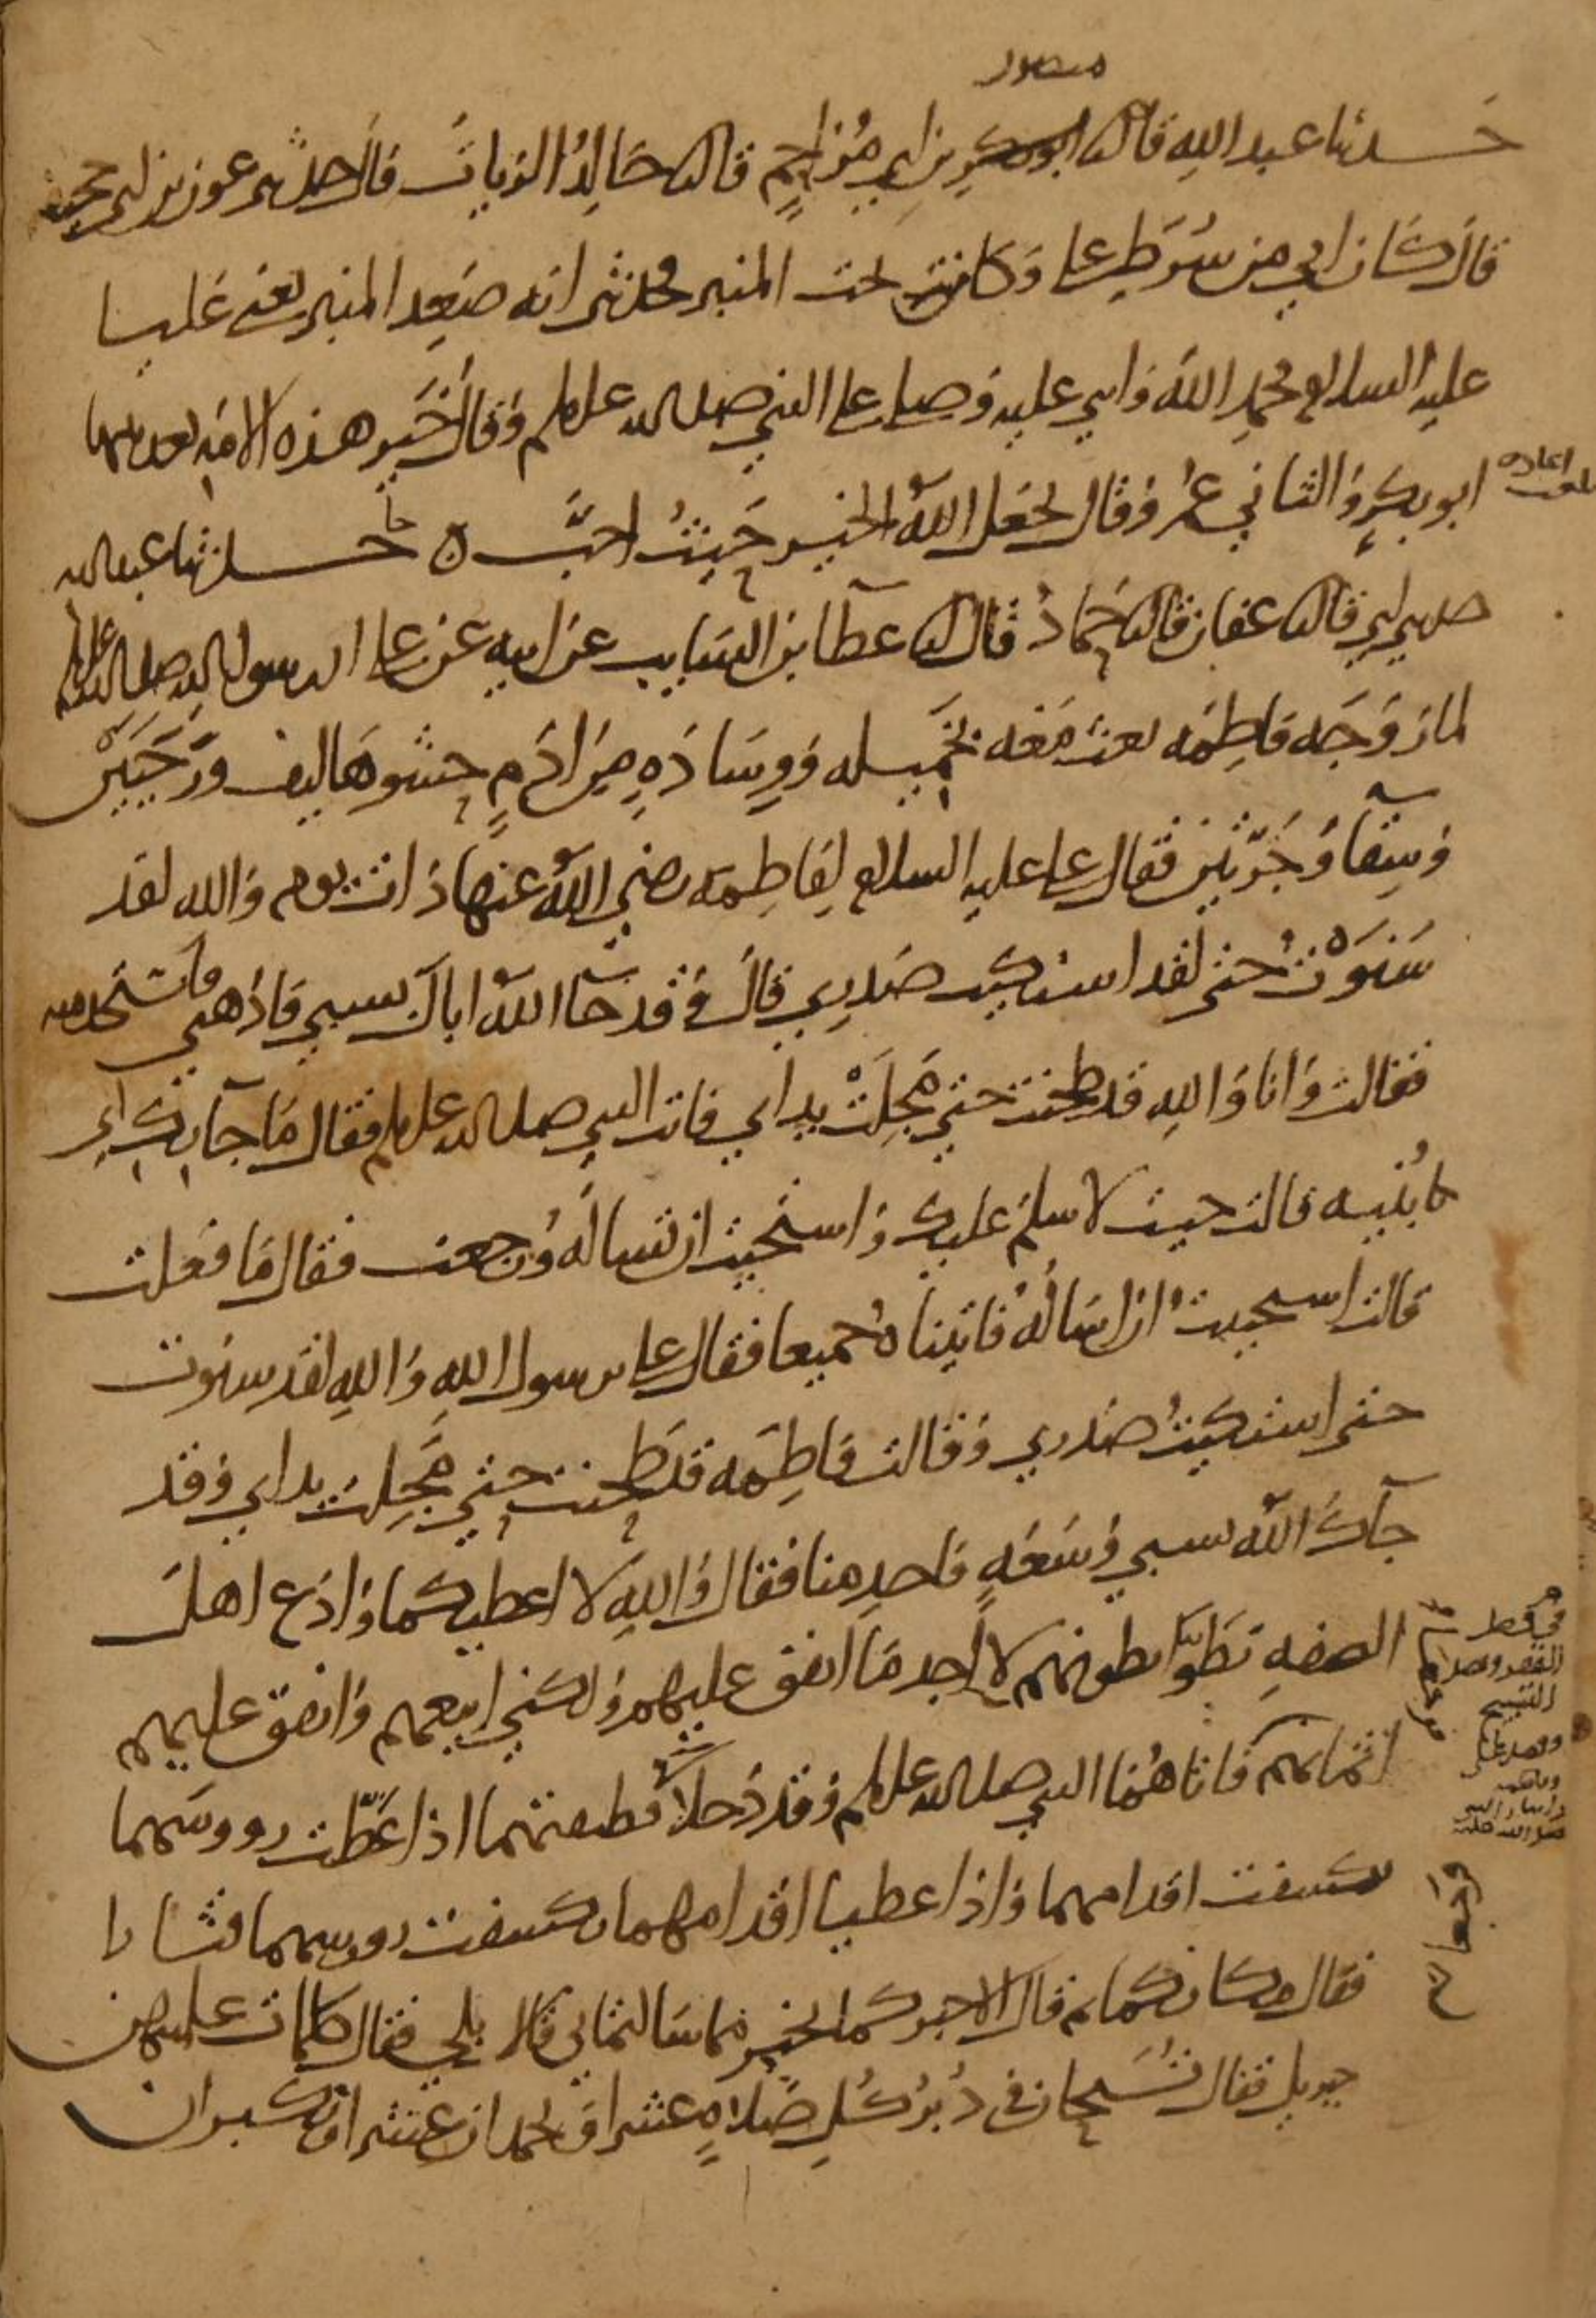 منصور
حدثنا عبد الله قال ثنا ابوبكر بن ابي مزاحم قال ثنا خالد الزيات قال حدثني عون بن ابي جحيفه
قال كان ابي من شرط علي وكان تحت المنبر فحدثني انه صعد المنبر يعني عليا
عليه السلام فحمد الله واثني عليه وصلي علي النبي صلى الله عليه وسلم وقال خير هذه الامه بعد نبيها
ابو بكر والثاني عمر وقال يجعل الله الخير حيث احب ه حدثنا عبد الله
حدثني ابي قال ثنا عفان قال ثنا حماد قال ثنا عطآ بن السايب عن ابيه عن علي ان رسول الله صلى الله عليه وسلم
لما زوجه فاطمه بعث معه بخميله ووساده من ادم حشوها ليف ورحيين
وسقآ وجرتين فقال علي عليه السلام لفاطمه رضي الله عنها ذات يوم والله لقد
سنوت حتى لقد اشتكيت صدري قال وقد جآ الله اباك بسبي فاذهبي فاستخدميه
فقالت وانا والله قد طحنت حتي مجلت يداي فاتت النبي صلى الله عليه وسلم فقال ما جآ بك اي
بنيه قالت جيت لاسلم عليك واستحيت ان تساله ورجعت فقال ما فعلت
قالت استحييت ان اساله فاتيناه جميعا فقال علي يرسول الله والله لقد سنوت
حتى اشتكيت صدري وقالت فاطمه قد طحنت حتي مجلت يداي وقد
جآك الله بسبي وسعه فاخدمنا فقال والله لا اعطيكما وادع اهل
الصفه تطوا بطونهم لا اجد ما انفق عليهم ولكني ابيعهم وانفق عليهم
اثمانهم فاتاهما النبي صلى الله عليه وسلم وقد دخلا قطيفتهما اذا غطت رووسهما
تكشفت اقدامهما واذا غطيا اقدامهما تكشفت رووسهما فثارا
فقال مكانكما ثم قال الا اخبركما بخير مما سالتماني قالا بلي فقال كلمات علمنيهن
جبريل فقال تسبحان في دبر كل صلاه عشرا وتحمدان عشرا وتكبران